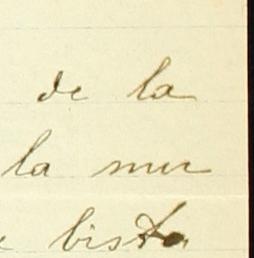 de la
la mu
bista